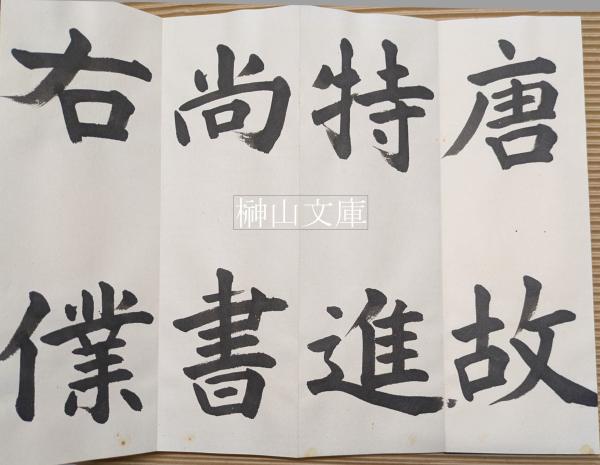 唐故
特進
尚書
右僕
榊山文庫